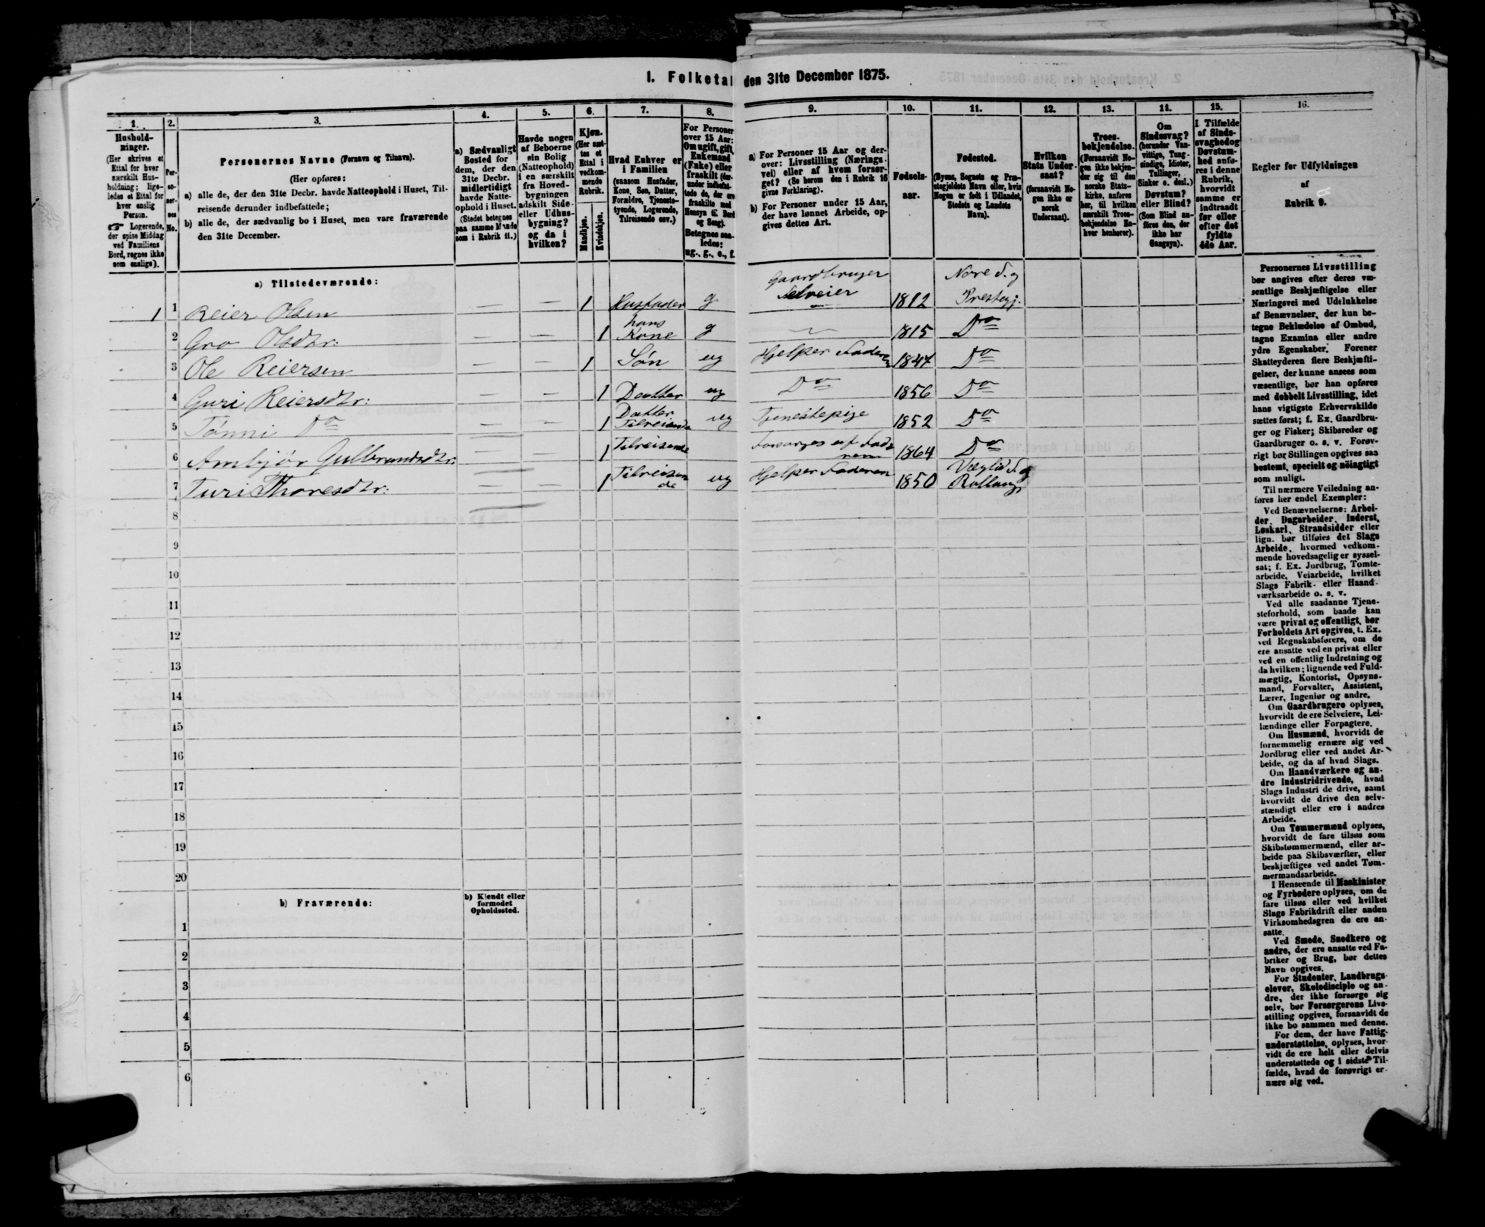 I. Folketal den 31te December 1875.
1.
2.
3.
4.
5.
6.
7.
8.
9.
10.
11.
12.
13.
14.
15.
16.
Hushold-
ninger.
(Her skrives et
Ettal for hver
særskilt Hus-
holdning; lige-
ledes et Ettal for
hver enslig
Person.
☞ Logerende,
der spise Middag
ved Familiens
Bord, regnes ikke
som enslige).
Per-
so-
ner-
nes
No.
Personernes Navne (Fornavn og Tilnavn).
(Her opføres:
a) alle de, der den 31te Decbr. havde Natteophold i Huset, Til-
reisende derunder indbefattede;
b) alle de, der sædvanlig bo i Huset, men vare fraværende
den 31te December.
a) Sædvanligt
Bosted for
dem, der den
31te Decbr.
midlertidigt
havde Natte-
ophold i Huset.
(Stedet betegnes
paa samme Maade
som i Rubrik 11.)
Havde nogen
af Beboerne
sin Bolig
(Natteophold)
i en særskilt
fra Hoved-
bygningen
adskilt Side-
eller Udhus-
bygning?
og da i
hvilken?
Kjøn.
(Her sæt-
tes et
Ettal i
vedkom-
mende
Rubrik.
Mandkjøn.
Kvindekjøn.
Hvad Enhver er
i Familien
(saasom Husfader,
Kone, Søn, Datter,
Forældre, Tjeneste-
tyende, Logerende,
Tilreisende osv.)
For Personer
over 15 Aar:
Om ugift, gift,
Enkemand
(Enke) eller
fraskilt (der-
under indbefat-
tede de, der ere
fraskilte med
Hensyn til Bord
og Seng).
Betegnes saa-
ledes:
ug., g., e., f.
a) For Personer 15 Aar og der-
over: Livsstilling (Nærings-
vei) eller af hvem forsør-
get? (Se herom den i Rubrik 16
givne Forklaring).
b) For Personer under 15 Aar,
der have lønnet Arbeide, op-
gives dettes Art.
Fødsels-
aar.
Fødested.
(Byens, Sognets og Præ-
stegjeldets Navn eller, hvis
Nogen er født i Udlandet,
Stedets og Landets
Navn).
Hvilken
Stats Under-
saat?
(forsaavidt No-
gen ikke er
norsk
Undersaat).
Troes-
bekjendelse.
(Forsaavidt No-
gen ikke bekjen-
der sig til den
norske Stats-
kirke, anføres
her, til hvilken
særskilt Troes-
bekjendelse En-
hver henhører).
Om
Sindssvag?
(herunder Van-
vittige, Tung-
sindige, Idioter,
Tullinger,
Sinker o. desl.)
Døvstum?
eller Blind?
(Som Blind an-
føres den, der
ikke har
Gangsyn).
I Tilfælde
af Sinds-
svaghed og
Døvstum-
hed anfø-
res i denne
Rubrik,
hvorvidt
samme er
indtraadt
før eller
efter det
fyldte
4de Aar.
Regler for Udfyldningen
af
Rubrik 9.
a) Tilstedeværende:
1 1 Reier Olsen — — 1 Husfader g Gaardbruger Selveier 1812 Nore S. og Præstegj.
2 Gro Olsdtr: — — 1 hans Kone g — 1815 Do
3 Ole Reiersen — — 1 Søn ug Hjelper Faderen 1847 Do
4 Guri Reiersdtr: — — 1 Datter ug Do 1856 Do
5 Tønni Do — — 1 Datter Tilreisende ug Tjenestepige 1852 Do
6 Ambjør Gulbrandsdtr: — — 1 Tilreisende Forsørges af Faderen 1864 Do
7 Turi Thoresdtr: — — 1 Tilreisende ug Hjelper Faderen 1850 Vægli S. og Rollaug
8
9
10
11
12
13
14
15
16
17
18
19
20
b) Fraværende:
b) Kjendt eller
formodet
Opholdssted.
1
2
3
4
5
6
Personernes Livsstilling
bør angives efter deres væ-
sentlige Beskjæftigelse eller
Næringsvei med Udelukkelse
af Benævnelser, der kun be-
tegne Beklædelse af Ombud,
tagne Examina eller andre
ydre Egenskaber. Forener
Skatteyderen flere Beskjæfti-
gelser, der kunne ansees som
væsentlige, bør han opføres
med dobbelt Livsstilling, idet
hans vigtigste Erhvervskilde
sættes først; f. Ex. Gaardbru-
ger og Fisker; Skibsreder og
Gaardbruger o. s. v. Forøv-
rigt bør Stillingen opgives saa
bestemt, specielt og nøiagtigt
som muligt.
Til nærmere Veiledning an-
føres her endel Exempler:
Ved Benævnelserne: Arbei-
der, Dagarbeider, Inderst,
Løskarl, Strandsidder eller
lign. bør tilføies det Slags
Arbeide, hvormed vedkom-
mende hovedsagelig er syssel-
sat; f. Ex. Jordbrug, Tomte-
arbeide, Veiarbeide, hvilket
Slags Fabrik- eller Haand-
værksarbeide o. s. v.
Ved alle saadanne Tjene-
steforhold, som baade kan
være privat og offentligt, bør
Forholdets Art opgives, t. Ex.
ved Regnskabsførere, om de
ere ansatte ved en privat eller
ved en offentlig Indretning og
da hvilken; lignende ved Fuld-
mægtig, Kontorist, Opsyns-
mand, Forvalter, Assistent,
Lærer, Ingeniør og andre.
Om Gaardbrugere oplyses,
hvorvidt de ere Selveiere, Lei-
lændinge eller Forpagtere.
Om Husmænd, hvorvidt de
fornemmelig ernære sig ved
Jordbrug eller ved andet Ar-
beide, og da af hvad Slags.
Om Haandværkere og an-
dre Industridrivende, hvad
Slags Industri de drive, samt
hvorvidt de drive den selv-
stændigt eller ere i andres
Arbeide.
Om Tømmermænd oplyses,
hvorvidt de fare tilsøs som
Skibstømmermænd, eller ar-
beide paa Skibsværfter, eller
beskjæftiges ved andet Tøm-
mermandsarbeide.
I Henseende til Maskinister
og Fyrbødere oplyses, om de
fare tilsøs eller ved hvilket
Slags Fabrikdrift eller anden
Virksomhedsgren de ere an-
satte.
Ved Smede, Snedkere og
andre, der ere ansatte ved Fa-
briker og Brug, bør dettes
Navn opgives.
For Studenter, Landbrugs-
elever, Skoledisciple og an-
dre, der ikke forsørge sig
selv, bør Forsørgerens Livs-
stilling opgives, forsaavidt de
ikke bo sammen med denne.
For dem, der have Fattig-
understøttelse, oplyses, hvor-
vidt de ere helt eller delvis
understøttede og i sidste Til-
fælde, hvad de forøvrigt er-
nære sig ved.